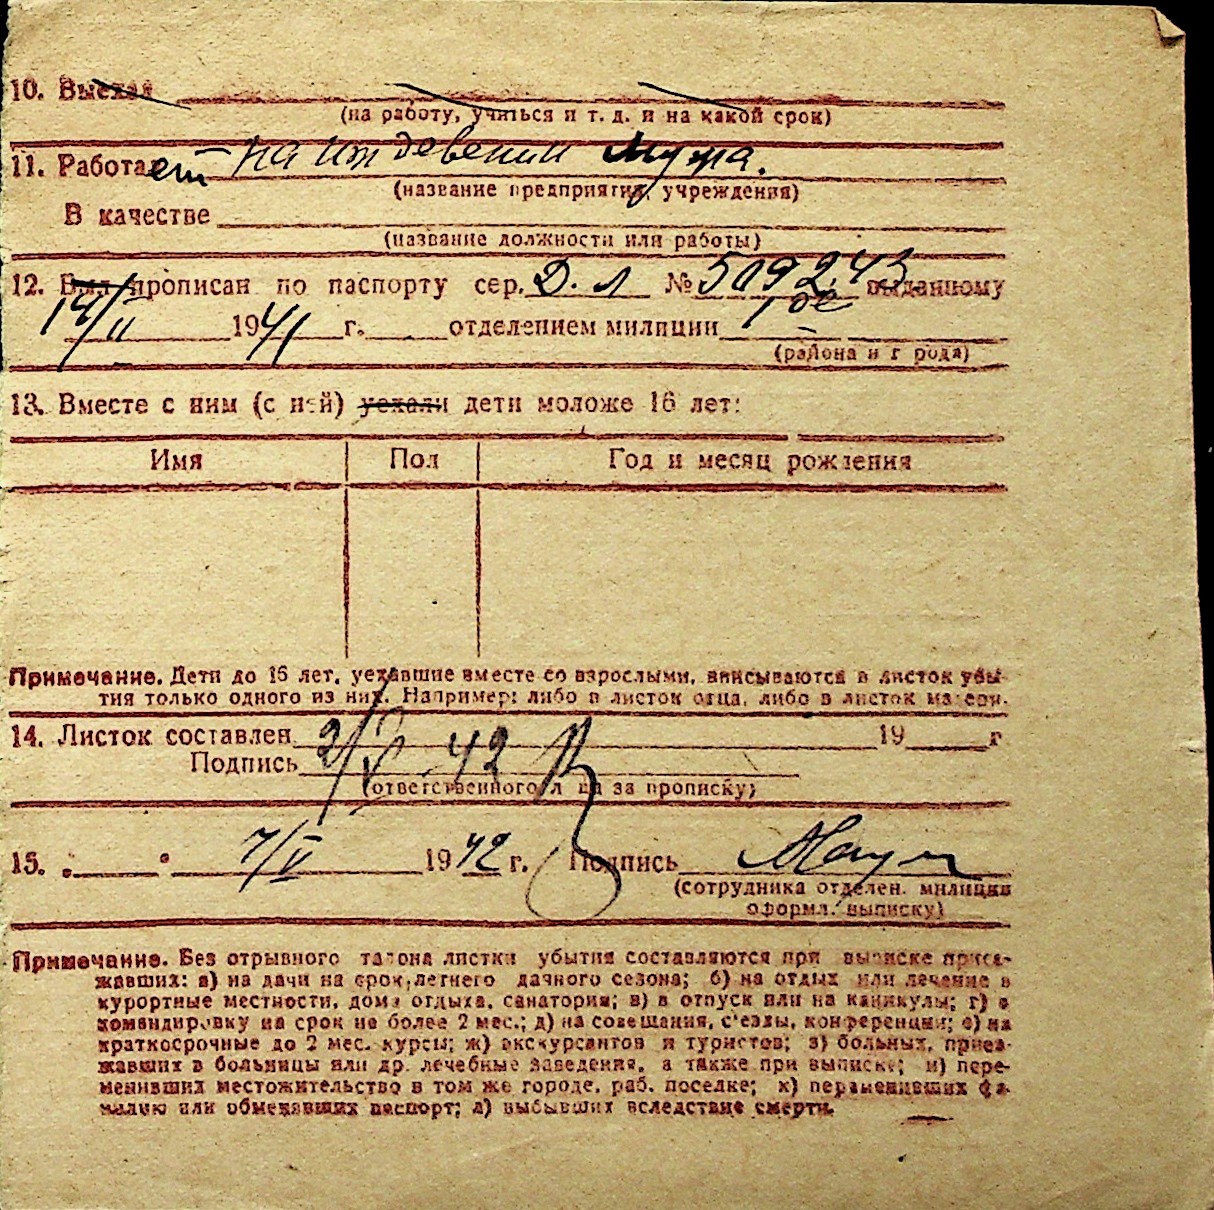 10. Выехал
(на работу, учиться и т. д. и на какой срок)
11. Работает на иждевении мужа.
(название предприятия, учреждения)
В качестве
(название должности или работы)
12. Был прописан по паспорту сер. Д. Л № 509243 выданному
14/II 1941 г. отделением милиции 1ое
(района и города)
13. Вместе с ним (с ней) уехали дети моложе 16 лет:
Имя Пол Год и месяц рождения
Примечание. Дети до 16 лет, уехавшие вместе со взрослыми, вписываются в листок убы-
тия только одного из них. Например: либо в листок отца, либо в листок матери.
14. Листок составлен 2/V 42 19 г
Подпись
(ответственного лица за прописку)
15. " " 7/V 1942 г. Подпись
(сотрудника отделен. милиции
оформл. выписку)
Примечание. Без отрывного талона листки убытия составляются при выписке приез-
жавших: а) на дачи на срок летнего дачного сезона; б) на отдых или лечение в
курортные местности, дома отдыха, санатории; в) в отпуск или на каникулы; г) в
командировку на срок не более 2 мес.; д) на совещания, с'езды, конференции; е) на
краткосрочные до 2 мес. курсы; ж) экскурсантов и туристов; з) больных, приез-
жавших в больницы или др. лечебные заведения, а также при выписке; и) пере-
менивших местожительство в том же городе, раб. поселке; к) переменивших фа-
милию или обменявших паспорт; л) выбывших вследствие смерти.